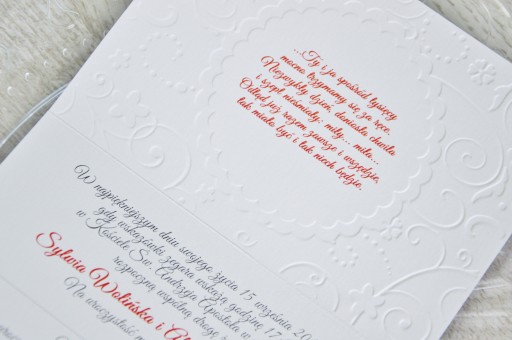 ...Ty i ja spośród tysięcy
mocno trzymamy się za ręce.
Niezwykły dzień, doniosła chwila
i szept nieśmiały: miły... miła...
Odtąd już razem zawsze i wszędzie,
tak miało być i tak niech będzie.
W najpiękniejszym dniu swojego życia 15 września 20
gdy wskazówki zegara wskażą godzinę 17
w Kościele Św. Andrzeja Apostoła w
rozpoczną wspólną drogę
Sylwia Wolińska i
Na uroczystość